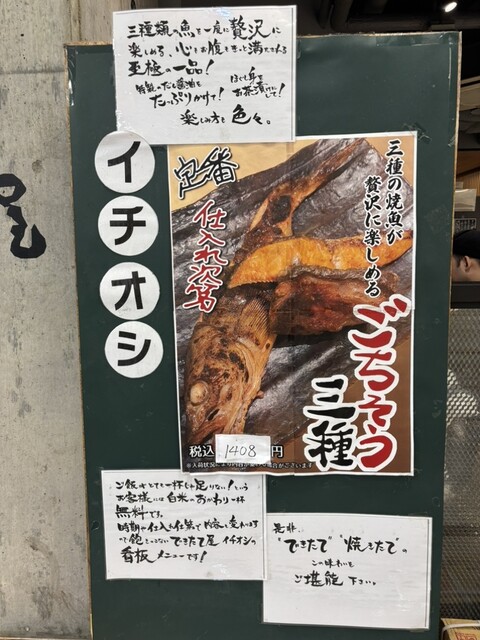 三種類の魚を一度に贅沢に
楽しめる、心もお腹もきっと満たされる
至極の一品!
特製のだし醤油を
たっぷりかけて!
ほぐし身を
お茶漬けにして!
楽しみ方も色々。
イチオシ
定番
仕入れ次第
三種の焼魚が
贅沢に楽しめる
ごちそう
三種
税込 1408 円
ご飯がとても一杯じゃ足りない!という
お客様には白米のおかわり一杯
無料です。
時期や仕入れ仕第で内容も変わるの
で飽きのこないできたて屋イチオシの
看板メニューです!
是非、
"できたて" "焼きたて"の
この味わいを
ご堪能下さい。